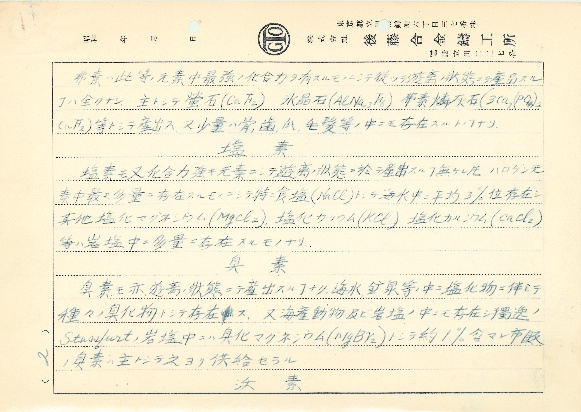 昭和 年 月 日
株式会社 後藤合金鋳工所
弗素ハ此等ノ元素中最強ノ化合力ヲ有スルモノニシテ従ツテ遊離ノ状態ニテ産出スル
コハ全クナシ 主トシテ螢石(CaF₂) 水晶石(AlNa₃F₆) 弗素燐灰石(3Ca₃(PO₄)₂
CaF₂)等トシテ産出ス 又少量ハ骨,歯,血,毛髪等ノ中ニモ存在スルコトアリ.
塩 素
塩素モ又化合力強キ元素ニシテ遊離ノ状態ニ於テ産出スルコ無ケレド ハロゲン元
素中最モ多量ニ存在スルモノニシテ特ニ食塩(NaCl)トシテ海水中ニ平均3%位存在シ
其他 塩化マグネシウム(MgCl₂) 塩化カリウム(KCl) 塩化カルシウム(CaCl₂)
等ハ岩塩中ニ多量ニ存在スルモノナリ.
臭 素
臭素モ亦遊離ノ状態ニテ産出スルコナリ,海水鉱泉等ノ中ニ塩化物ニ伴ヒテ
種々ノ臭化物トシテ存在ス. 又海産動物及ビ岩塩ノ中ニモ存在シ獨逸ノ
Stassfurtノ岩塩中ニハ臭化マグネシウム(MgBr₂)トシテ約1%含マレ市販
ノ臭素ハ主トシテ之ヨリ供給セラル
沃 素
(2)